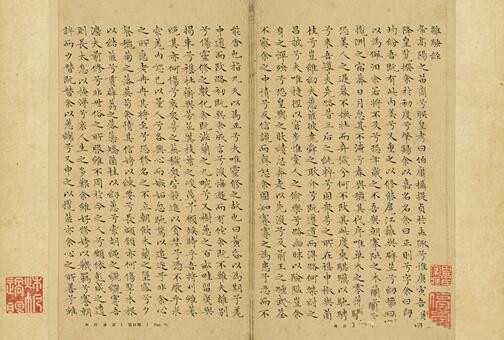 離騷經
帝高陽之苗裔兮朕皇考曰伯庸攝提貞於孟陬兮惟庚寅吾以
降皇覽揆余於初度兮肇錫余以嘉名名余曰正則兮字余曰靈
均紛吾既有此內美兮又重之以脩能扈江離與辟芷兮紉秋蘭
以為佩汨余若將不及兮恐年歲之不吾與朝搴阰之木蘭兮夕
攬洲之宿莽日月忽其不淹兮春與秋其代序惟草木之零落兮
恐美人之遲暮不撫壯而棄穢兮何不改其此度乘騏驥以馳騁
兮來吾導夫先路昔三后之純粹兮固衆芳之所在雜申椒與菌
桂兮豈維紉夫蕙茝彼堯舜之耿介兮既遵道而得路何桀紂之
昌披兮夫唯捷徑以窘步惟黨人之偷樂兮路幽昧以險隘豈余
身之憚殃兮恐皇輿之敗績忽奔走以先後兮及前王之踵武荃
不察余之中情兮反信讒而齌怒余固知謇謇之為患兮忍而不
能舍也指九天以為正兮夫唯靈脩之故也曰黃昏以為期兮羌
中道而改路初既與余成言兮後悔遁而有佗余既不難夫離別
兮傷靈脩之數化余既滋蘭之九畹兮又樹蕙之百畝畦留夷與
揭車兮雜杜衡與芳芷冀枝葉之峻茂兮願竢時乎吾將刈雖萎
絕其亦何傷兮哀衆芳之蕪穢衆皆競進以貪婪兮憑不猒乎求
索羌內恕己以量人兮各興心而嫉妬忽馳騖以追逐兮非余心
之所急老冉冉其將至兮恐脩名之不立朝飲木蘭之墜露兮夕
餐秋菊之落英苟余情其信姱以練要兮長顑頷亦何傷擥木根
以結茝兮貫薜荔之落蘂矯菌桂以紉蕙兮索胡繩之纚纚謇吾
法夫前脩兮非世俗之所服雖不周於今之人兮願依彭咸之遺
則長太息以掩涕兮哀人生之多艱余雖好脩姱以鞿羈兮謇朝
誶而夕替既替余以蕙纕兮又申之以攬茝亦余心之所善兮雖